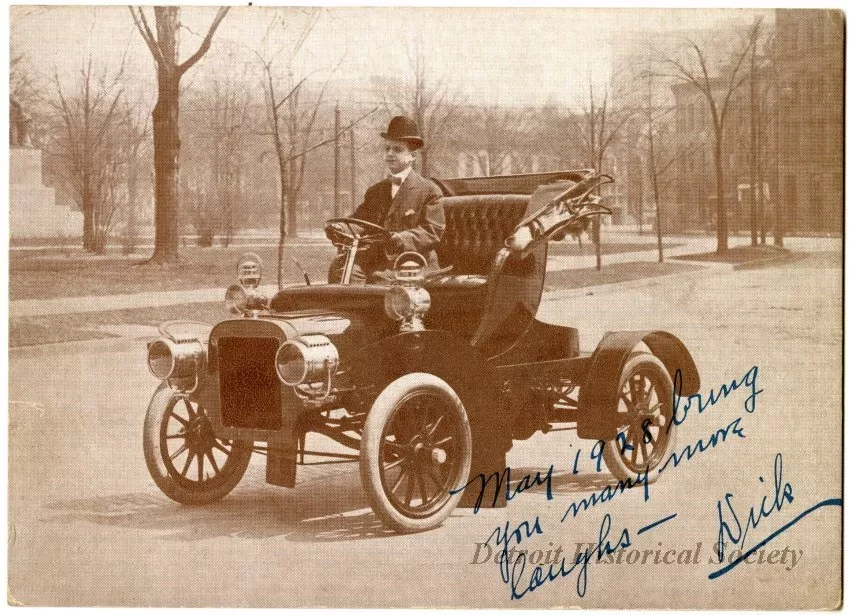 May 1928 bring
you many more
laughs —
Dick
Detroit Historical Society